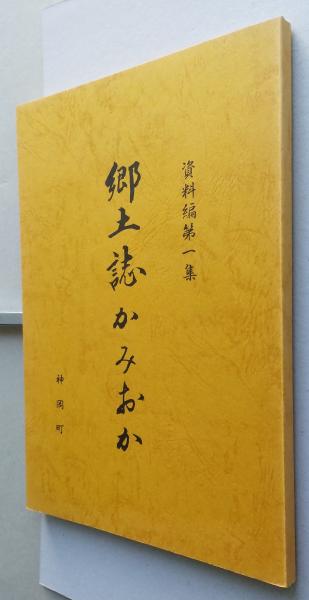 資料編第一集
郷土誌かみおか
神岡町